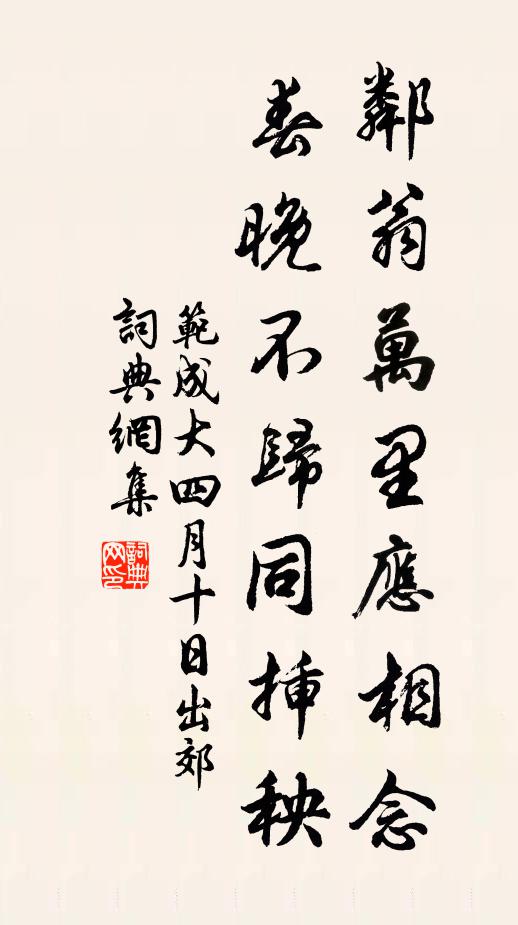 鄰翁萬里應相念
春晚不歸同挿秧
範成大四月十日出郊
詞典網集
詞典网印